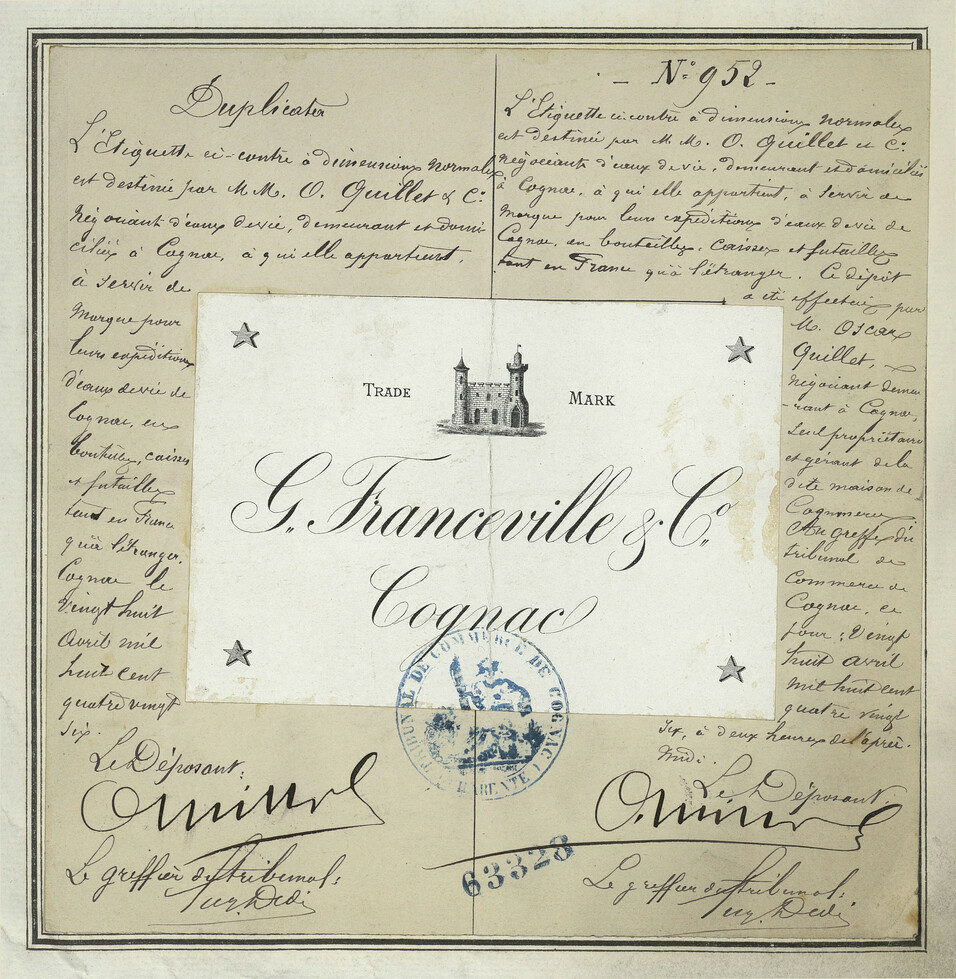 Duplicata
L'Etiquette ci-contre à dimensions normales
est destinée par M.M. O. Quillet & Cie
Négociant d'eaux de vie, demeurant et domi-
ciliés à Cognac, à qui elle appartient,
à servir de
Marque pour
leurs expéditions
d'eaux de vie de
Cognac, en
bouteilles, caisses
et futailles
tant en France
qu'à l'étranger.
Cognac le
Vingt huit
avril mil
huit cent
quatre vingt
six.
Le Déposant:
Le greffier du tribunal:
- N° 952 -
L'Etiquette ci-contre à dimensions normales
est destinée par M.M. O. Quillet et Cie
Négociants d'eaux de vie, demeurant et domiciliés
à Cognac, à qui elle appartient, à servir de
Marque pour leurs expéditions d'eaux de vie de
Cognac, en bouteilles, caisses et futailles
tant en France qu'à l'étranger. Ce dépôt
a été effectué par
M. Oscar
Quillet,
Négociant demeu
-rant à Cognac,
seul propriétaire
et gérant de la
dite maison de
Commerce
Au greffe du
tribunal de
Commerce de
Cognac, ce
jour, Vingt
huit avril
mil huit cent
quatre vingt
six, à deux heures de l'après-
midi.
Le Déposant
Le greffier du tribunal:
TRADE MARK
G. Franceville & Co.
Cognac
TRIBUNAL DE COMMERCE DE COGNAC (CHARENTE)
63328